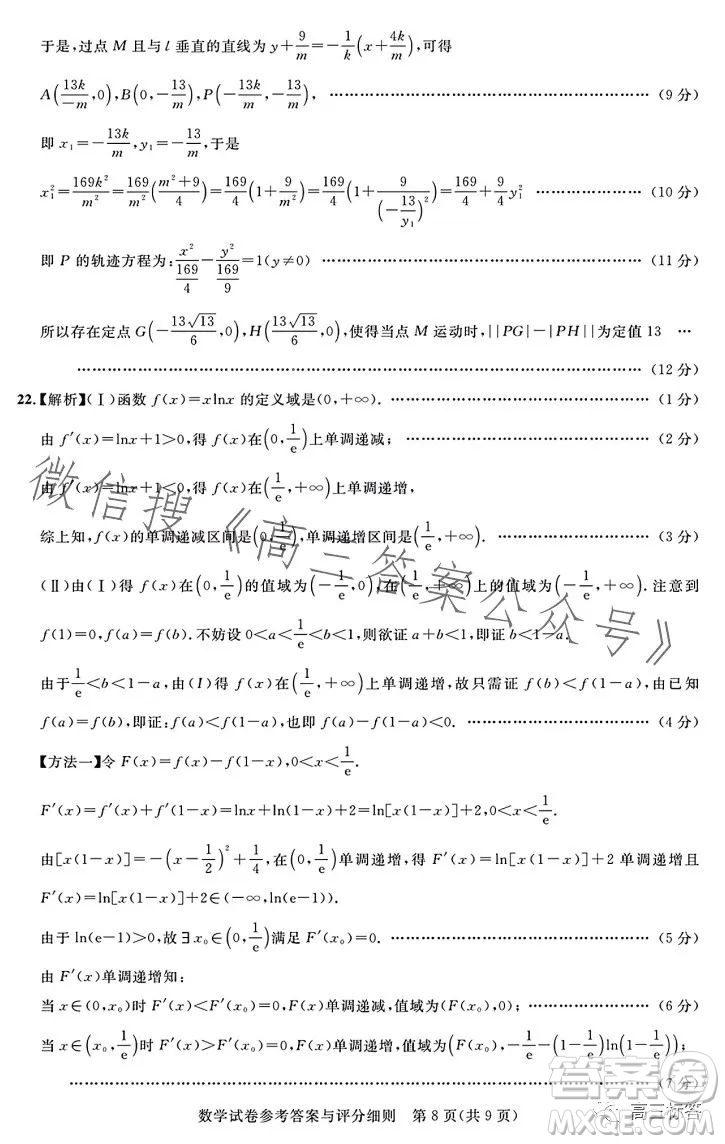 于是,过点 M 且与 l 垂直的直线为 y+9/m=-1/k(x+4k/m),可得
A(13k/-m,0),B(0,-13/m),P(-13k/m,-13/m), ……(9 分)
即 x₁=-13k/m,y₁=-13/m,于是
x₁²=169k²/m²=169/m²(m²+9/4)=169/4(1+9/m²)=169/4(1+9/(-13/y₁)²)=169/4+9/4y₁² ……(10 分)
即 P 的轨迹方程为:x²/(169/4)-y²/(169/9)=1(y≠0) ……(11 分)
所以存在定点 G(-13√13/6,0),H(13√13/6,0),使得当点 M 运动时,||PG|-|PH||为定值 13 …
……(12 分)
22.【解析】(Ⅰ)函数 f(x)=xlnx 的定义域是(0,+∞). ……(1 分)
由 f′(x)=lnx+1>0,得 f(x)在(0,1/e)上单调递减; ……(2 分)
由 f′(x)=lnx+1<0,得 f(x)在(1/e,+∞)上单调递增,
综上知,f(x)的单调递减区间是(0,1/e),单调递增区间是(1/e,+∞). ……(3 分)
(Ⅱ)由(Ⅰ)得 f(x)在(0,1/e)的值域为(-1/e,0),在(1/e,+∞)上的值域为(-1/e,+∞).注意到
f(1)=0,f(a)=f(b).不妨设 0<a<1/e<b<1,则欲证 a+b<1,即证 b<1-a.
由于1/e<b<1-a,由(Ⅰ)得 f(x)在(1/e,+∞)上单调递增,故只需证 f(b)<f(1-a),由已知
f(a)=f(b),即证:f(a)<f(1-a),也即 f(a)-f(1-a)<0. ……(4 分)
【方法一】令 F(x)=f(x)-f(1-x),0<x<1/e.
F′(x)=f′(x)+f′(1-x)=lnx+ln(1-x)+2=ln[x(1-x)]+2,0<x<1/e.
由[x(1-x)]=-(x-1/2)²+1/4在(0,1/e)单调递增,得 F′(x)=ln[x(1-x)]+2 单调递增且
F′(x)=ln[x(1-x)]+2∈(-∞,ln(e-1)).
由于 ln(e-1)>0,故∃x₀∈(0,1/e)满足 F′(x₀)=0. ……(5 分)
由 F′(x)单调递增知:
当 x∈(0,x₀)时 F′(x)<F′(x₀)=0,F(x)单调递减,值域为(F(x₀),0); ……(6 分)
当 x∈(x₀,1/e)时 F′(x)>F′(x₀)=0,F(x)单调递增,值域为(F(x₀),-1/e-(1-1/e)ln(1-1/e));
……(7 分)
数学试卷参考答案与评分细则 第 8 页(共 9 页)
微信搜《高三答案公众号》
高三标答
答案圈
MXQE.COM